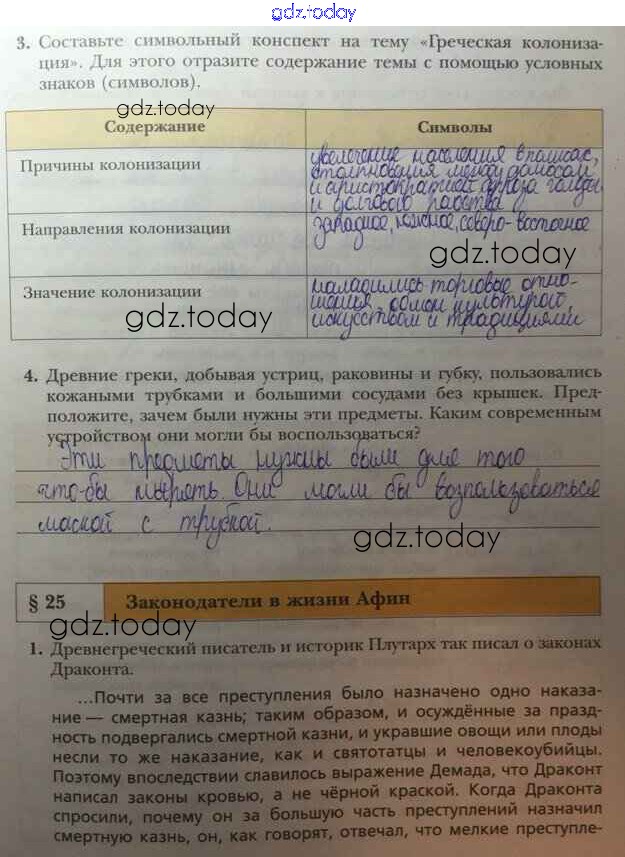 gdz.today
3. Составьте символьный конспект на тему «Греческая колониза-
ция». Для этого отразите содержание темы с помощью условных
знаков (символов).
gdz.today
Содержание Символы
Причины колонизации
увеличение населения в полисах,
столкновения между демосом
и аристократией, угроза голода
и долгового рабства
Направления колонизации
западное, южное, северо-восточное
gdz.today
Значение колонизации
наладились торговые отно-
шения, обмен культурой,
искусством и традициями
gdz.today
4. Древние греки, добывая устриц, раковины и губку, пользовались
кожаными трубками и большими сосудами без крышек. Пред-
положите, зачем были нужны эти предметы. Каким современным
устройством они могли бы воспользоваться?
Эти предметы нужны были для того
что-бы нырять. Они могли бы возпользоваться
маской с трубкой.
gdz.today
§ 25 Законодатели в жизни Афин
gdz.today
1. Древнегреческий писатель и историк Плутарх так писал о законах
Драконта.
...Почти за все преступления было назначено одно наказа-
ние — смертная казнь; таким образом, и осуждённые за празд-
ность подвергались смертной казни, и укравшие овощи или плоды
несли то же наказание, как и святотатцы и человекоубийцы.
Поэтому впоследствии славилось выражение Демада, что Драконт
написал законы кровью, а не чёрной краской. Когда Драконта
спросили, почему он за большую часть преступлений назначил
смертную казнь, он, как говорят, отвечал, что мелкие преступле-